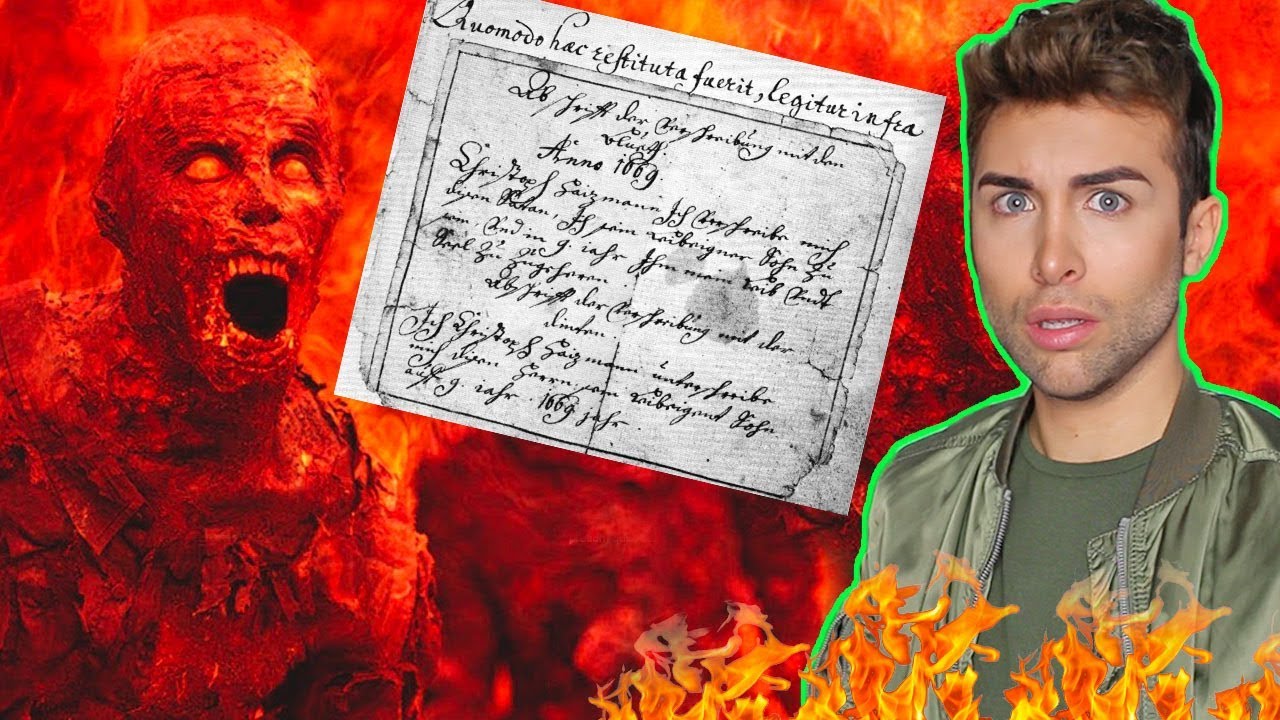 Quomodo hac restituta fuerit, legitur infra
Abschrifft der Verschreibung mit den
Blueth.
Anno 1669.
Christoph Haizmann Ich verschreibe mich
disen Satan, Ich sein leibeigner Sohn zu
sein Und in 9. iahr Ihm mein leib Undt
Seel zu zugeheren.
Abschrifft der Verschreibung mit der
dinten.
Ich Christoph Haizmann unterschreibe
mich disen Herrn sein leibeigent Sohn
auff 9. iahr. 1669 jahr.